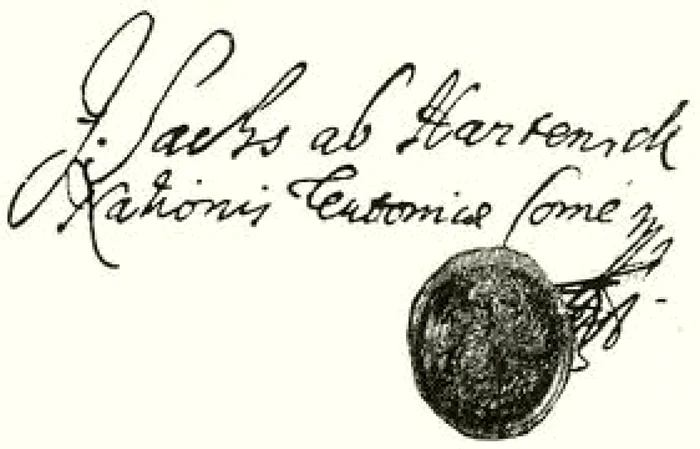 J. Sachs ab Harteneck
Nationis Teutonicæ Comes